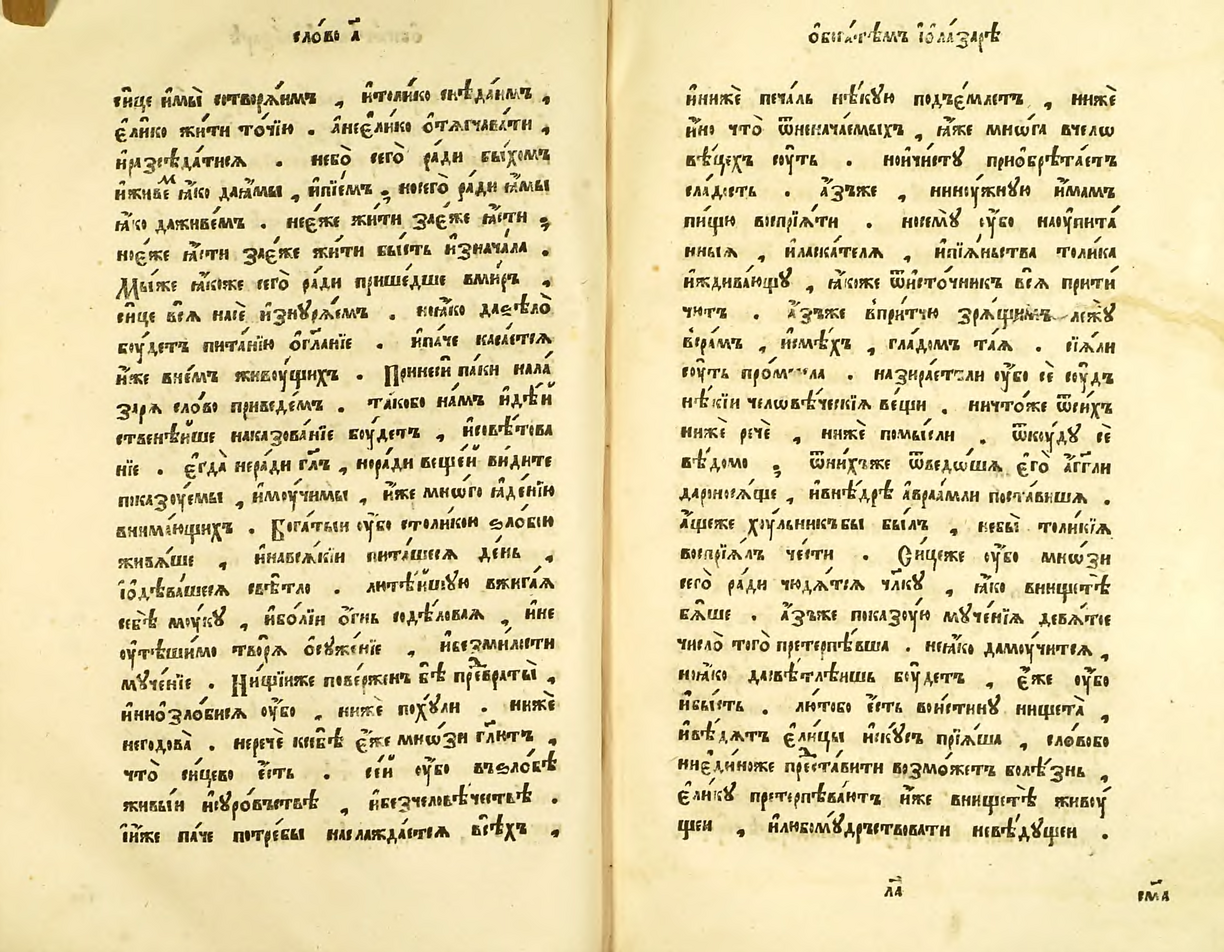 сло́во а҃
си́це и҆мы̀ сотворѧ́имъ , и҆толи́ко снѣ́даимъ ,
є҆ли́ко жи́ти то́чїю . а҆неє҆ли́ко ѻ҆тѧгчава́ти ,
и҆разсѣда́тисѧ . небо̀ сего̀ ра́ди бы́хомъ
и҆живе́м ꙗ҆́ко даꙗ҆мы , и҆пїе́мъ , носего̀ ра́ди ꙗ҆́мы
ꙗ҆́ко даживе́мъ . неє҆́же жи́ти зає҆́же ꙗ҆́сти ,
ноє҆́же ꙗ҆́сти зає҆́же жи́ти бы́сть и҆знача́ла .
Мы́же ꙗ҆́коже сего̀ ра́ди прише́дше вми́ръ ,
си́це всѧ̀ насѐ и҆знурѧ́емъ . неꙗ҆́ко даѕѣло̀
бꙋ́детъ пита́нїю ѻ҆гл҃а́нїе . и҆па́че каса́етсѧ
и҆́же вне́мъ живꙋ́щихъ . Принеси́ па́ки нала́
зарѧ сло́во приведе́мъ . та́кобо на́мъ и҆дѣ́й
ственѣ́йше наказова́нїе бꙋ́детъ , и҆совѣ́това
нїе . є҆гда̀ нера́ди гл҃ъ , нора́ди веще́й ви́дите
показꙋ́емы , и҆мꙋчимы , и҆́же мно́го ꙗ҆де́нїю
внима́ющихъ . Бога́тыи ᲂу҆́бо столи́кои ѕло́бїю
живѧ́ше , и҆навсѧ́кїи пита́шесѧ де́нь ,
і҆ѻ҆дѣва́шесѧ свѣ́тло . лютѣ́йшꙋю вжига́ѧ
себѣ̀ мꙋ́кꙋ , и҆бо́лїи ѻ҆́гнь содѣ́ловаѧ , и҆не
ᲂу҆тѣ́шимо творѧ̀ ѡ҆сꙋже́нїе , и҆безми́лости
мꙋче́нїе . Ни́щїиже пове́рженъ бѣ̀ преⷣвраты̀ ,
и҆ниѻ҆зло́бисѧ ᲂу҆́бо , нижѐ похꙋ́ли . нижѐ
негодова̀ . неречѐ ксебѣ̀ є҆́же мно́ѕи гл҃ютъ ,
что̀ си́цево є҆́сть . се́й ᲂу҆́бо въѕло́бѣ
живы́и и҆сꙋро́вьствѣ , и҆безчеловѣ́чествѣ .
и҆́иже па́че потре́бы наслажда́етсѧ всѣ́хъ ,
ѻ҆бога́тѣмъ і҆ѻ҆ла́зарѣ
и҆нижѐ печа́ль нѣ́кꙋю подъє́млетъ , нижѐ
и҆́но что̀ ѿнеча́емыхъ , ꙗ҆́же мнѡ́га вчелѡ
вѣ́цехъ сꙋ́ть . нои҆чи́стꙋ приѻбрѣта́етъ
сла́дость . а҆́зъже , нинꙋ́жнꙋю и҆́мамъ
пи́щꙋ воспрїѧ́ти . носемꙋ̀ ᲂу҆́бо наᲂу҆пита́
нныѧ , и҆ласка́телѧ , и҆пїѧ́ньства толи́ка
и҆ждива́ющꙋ , ꙗ҆́коже ѿи҆сто́чникъ всѧ̀ прити
чи́тъ . а҆́зъже впри́тчю зрѧ́щимъ лежꙋ̀
всра́мъ , и҆смѣ́хъ , гла́домъ та́ѧ . сїѧ̀ли
сꙋ́ть про́мысла . назира́етъли ᲂу҆́бо сѐ сꙋ́дъ
нѣ́кїи человѣ́ческїѧ ве́щи . ничто́же ѿси́хъ
нижѐ речѐ , нижѐ помы́сли . ѿкꙋ́дꙋ сѐ
вѣ́домо ; ѿни́хъже ѿведѡ́шѧ є҆го̀ а҆́гг҃ли
дароносѧ́ще , и҆внѣ́дрѣ а҆враа́мли поста́вишѧ .
а҆́щеже хꙋ́льникъбы бы́лъ , небы̀ толи́кїѧ
воспрїѧ́лъ че́сти . Си́цеже ᲂу҆́бо мно́зи
сего̀ ра́ди чюдѧ́тсѧ чл҃кꙋ , ꙗ҆́ко внищетѣ̀
бѧ́ше . а҆́зъже показꙋ́ю мꙋче́нїѧ девѧ́тое
число̀ того̀ претерпѣ́вша . неꙗ҆́ко дамꙋ́читсѧ ,
ноꙗ҆́ко дасвѣтлѣ́ишь бꙋ́детъ , є҆́же ᲂу҆́бо
и҆бы́сть . лю́тобо є҆́сть вои́стинꙋ нищета̀ ,
и҆вѣ́дѧтъ є҆ли́цы и҆́скꙋсъ прїѧ́ша , сло́вобо
ниєди́ноже преⷣста́вити возмо́жетъ болѣ́знь ,
є҆ли́кꙋ претерпѣва́ютъ и҆́же внищетѣ̀ живꙋ́
щеи , и҆любомꙋ́дръствовати невѣ́дꙋщеи .
ла҃
сма҃